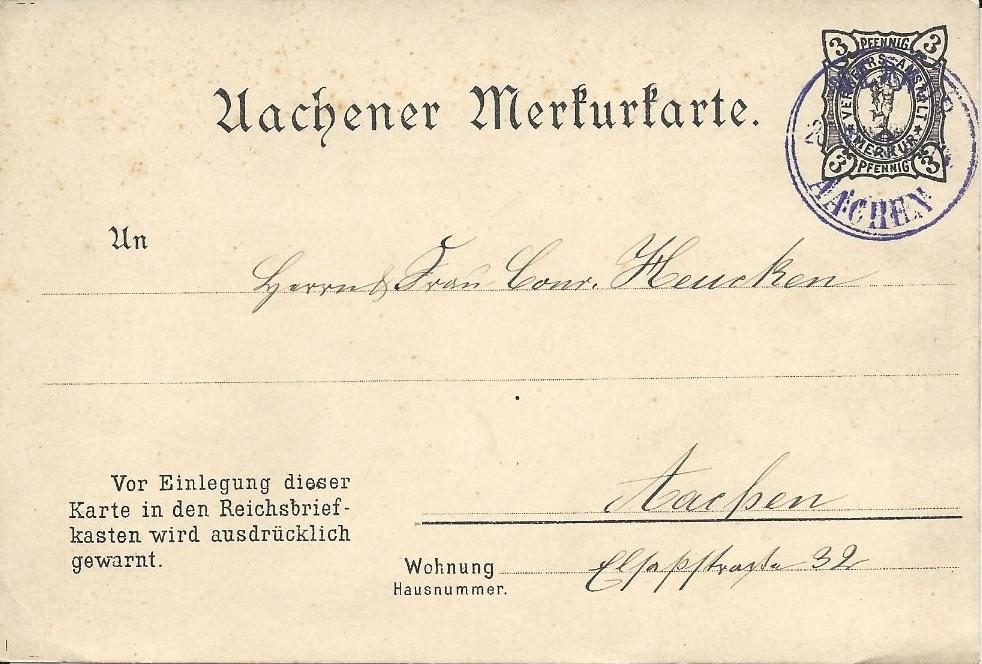 Aachener Merkurkarte.
3 PFENNIG 3
VERKEHRS-ANSTALT
* MERKUR *
3 PFENNIG 3
AACHEN
An
Herrn & Frau Conr. Heucken
Vor Einlegung dieser
Karte in den Reichsbrief-
kasten wird ausdrücklich
gewarnt.
Aachen
Wohnung
Hausnummer.
32